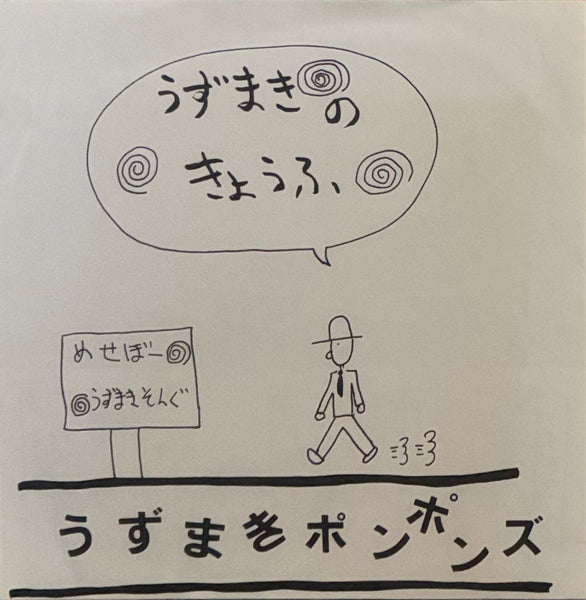 うずまきの
きょうふ、
めせぼー
うずまきそんぐ
ヨヨ
うずまきポンポンズ